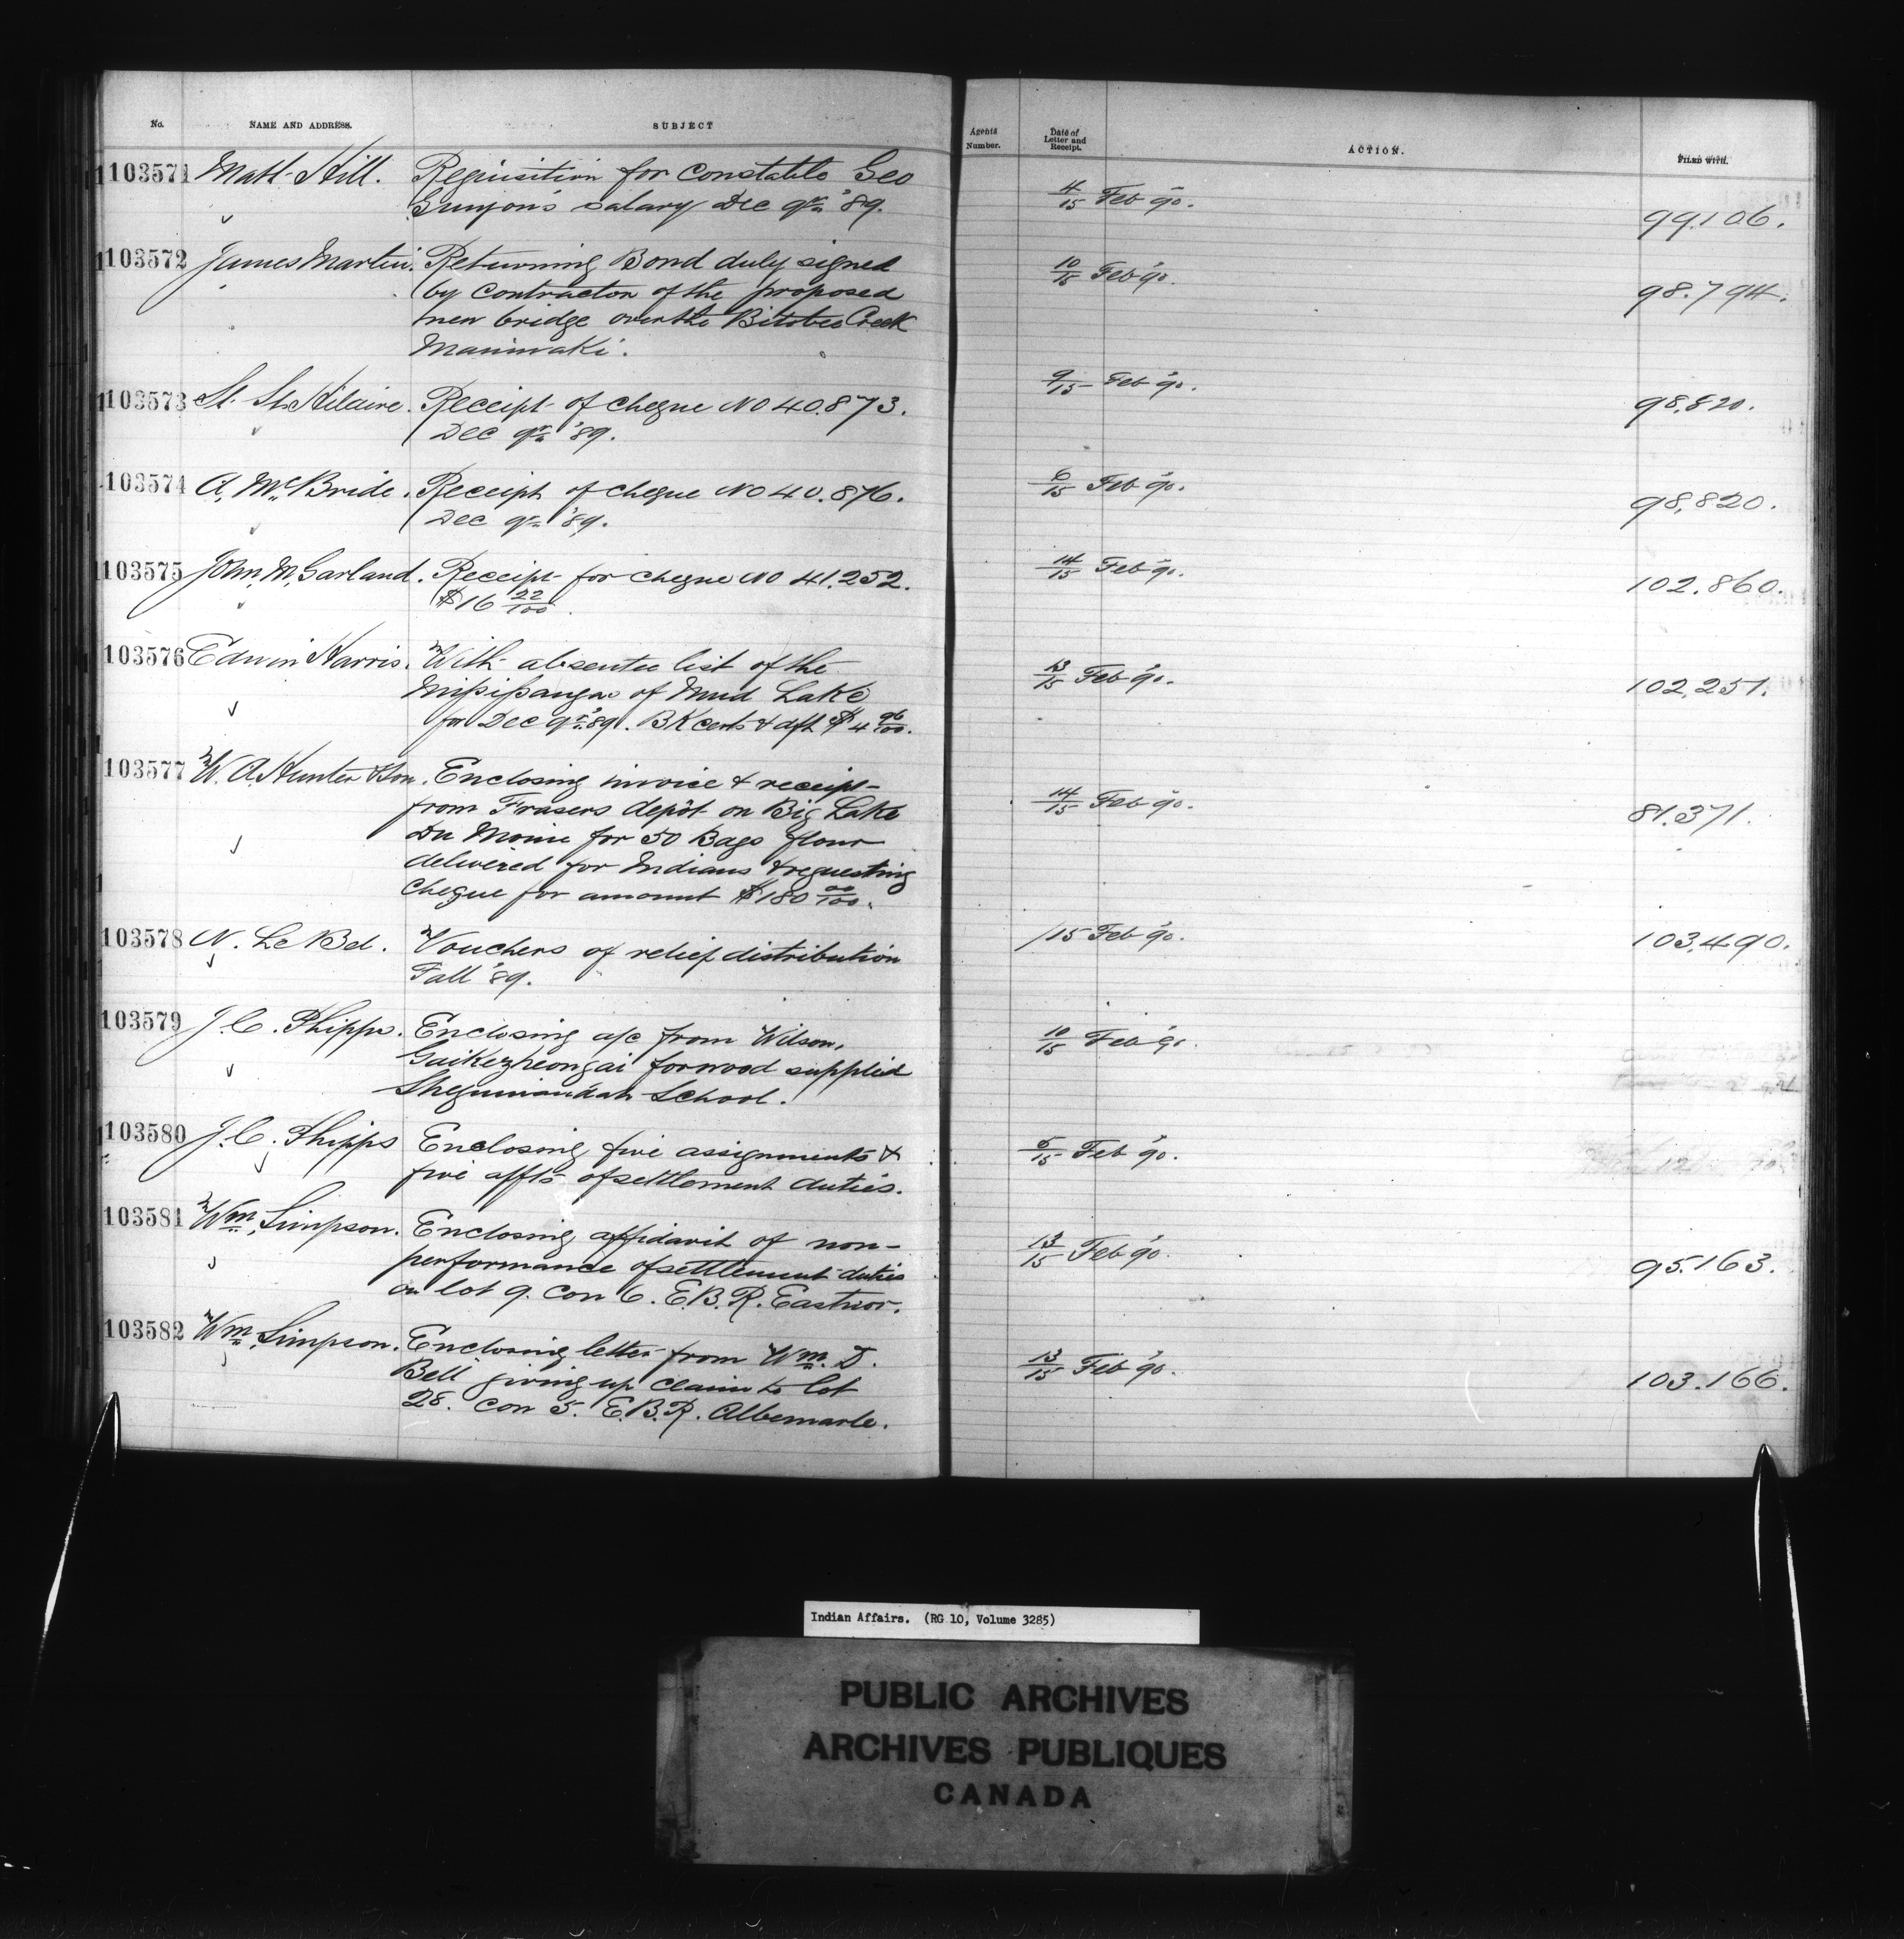 No. NAME AND ADDRESS. SUBJECT Agents Number. Date of Letter and Receipt. ACTION. FILED WITH.
103571 Matt Hill. Requisition for Constable Geo 4/15 Feb '90. 99.106.
salary Dec qr '89.
103572 James Martin. Returning Bond duly signed 10/15 Feb '90. 98.794.
by Contractor of the proposed
new bridge over the Bitobee Creek
Maniwaki.
103573 St. Hilaire. Receipt of cheque No 40.873. 9/15 Feb '90. 98.820.
Dec qr '89.
103574 A. McBride. Receipt of cheque No 40.876. 6/15 Feb '90. 98,820.
Dec qr '89.
103575 John M. Garland. Receipt for cheque No 41.252. 14/15 Feb '90. 102.860.
$16 22/100.
103576 Edwin Harris. With absentee list of the 13/15 Feb '90. 102,251.
of Mud Lake
for Dec qr '89. BK certs & dft $4 96/100.
103577 W. A. Hunter & Son. Enclosing invoice & receipt 14/15 Feb '90. 81.371.
from Frasers depôt on Big Lake
Du Moine for 50 Bags flour
delivered for Indians & requesting
cheque for amount $180 00/100.
103578 N. Le Bel. Vouchers of relief distribution /15 Feb '90. 103.490.
Fall '89.
103579 J. C. Phipps. Enclosing a/c from Wilson, 10/15 Feb '90.
Gaikezheongai for wood supplied
Sheguiandah School.
103580 J. C. Phipps Enclosing five assignments & 5/15 Feb '90.
five affts of settlement duties.
103581 Wm. Simpson. Enclosing affidavit of non- 13/15 Feb '90. 95.163.
performance of settlement duties
on lot 9. Con 6. E.B.R. Eastnor.
103582 Wm. Simpson. Enclosing letter from Wm. D. 13/15 Feb '90. 103.166.
Bell giving up claim to lot
28. Con 5. E.B.R. Albemarle.
Indian Affairs. (RG 10, Volume 3285)
PUBLIC ARCHIVES
ARCHIVES PUBLIQUES
CANADA